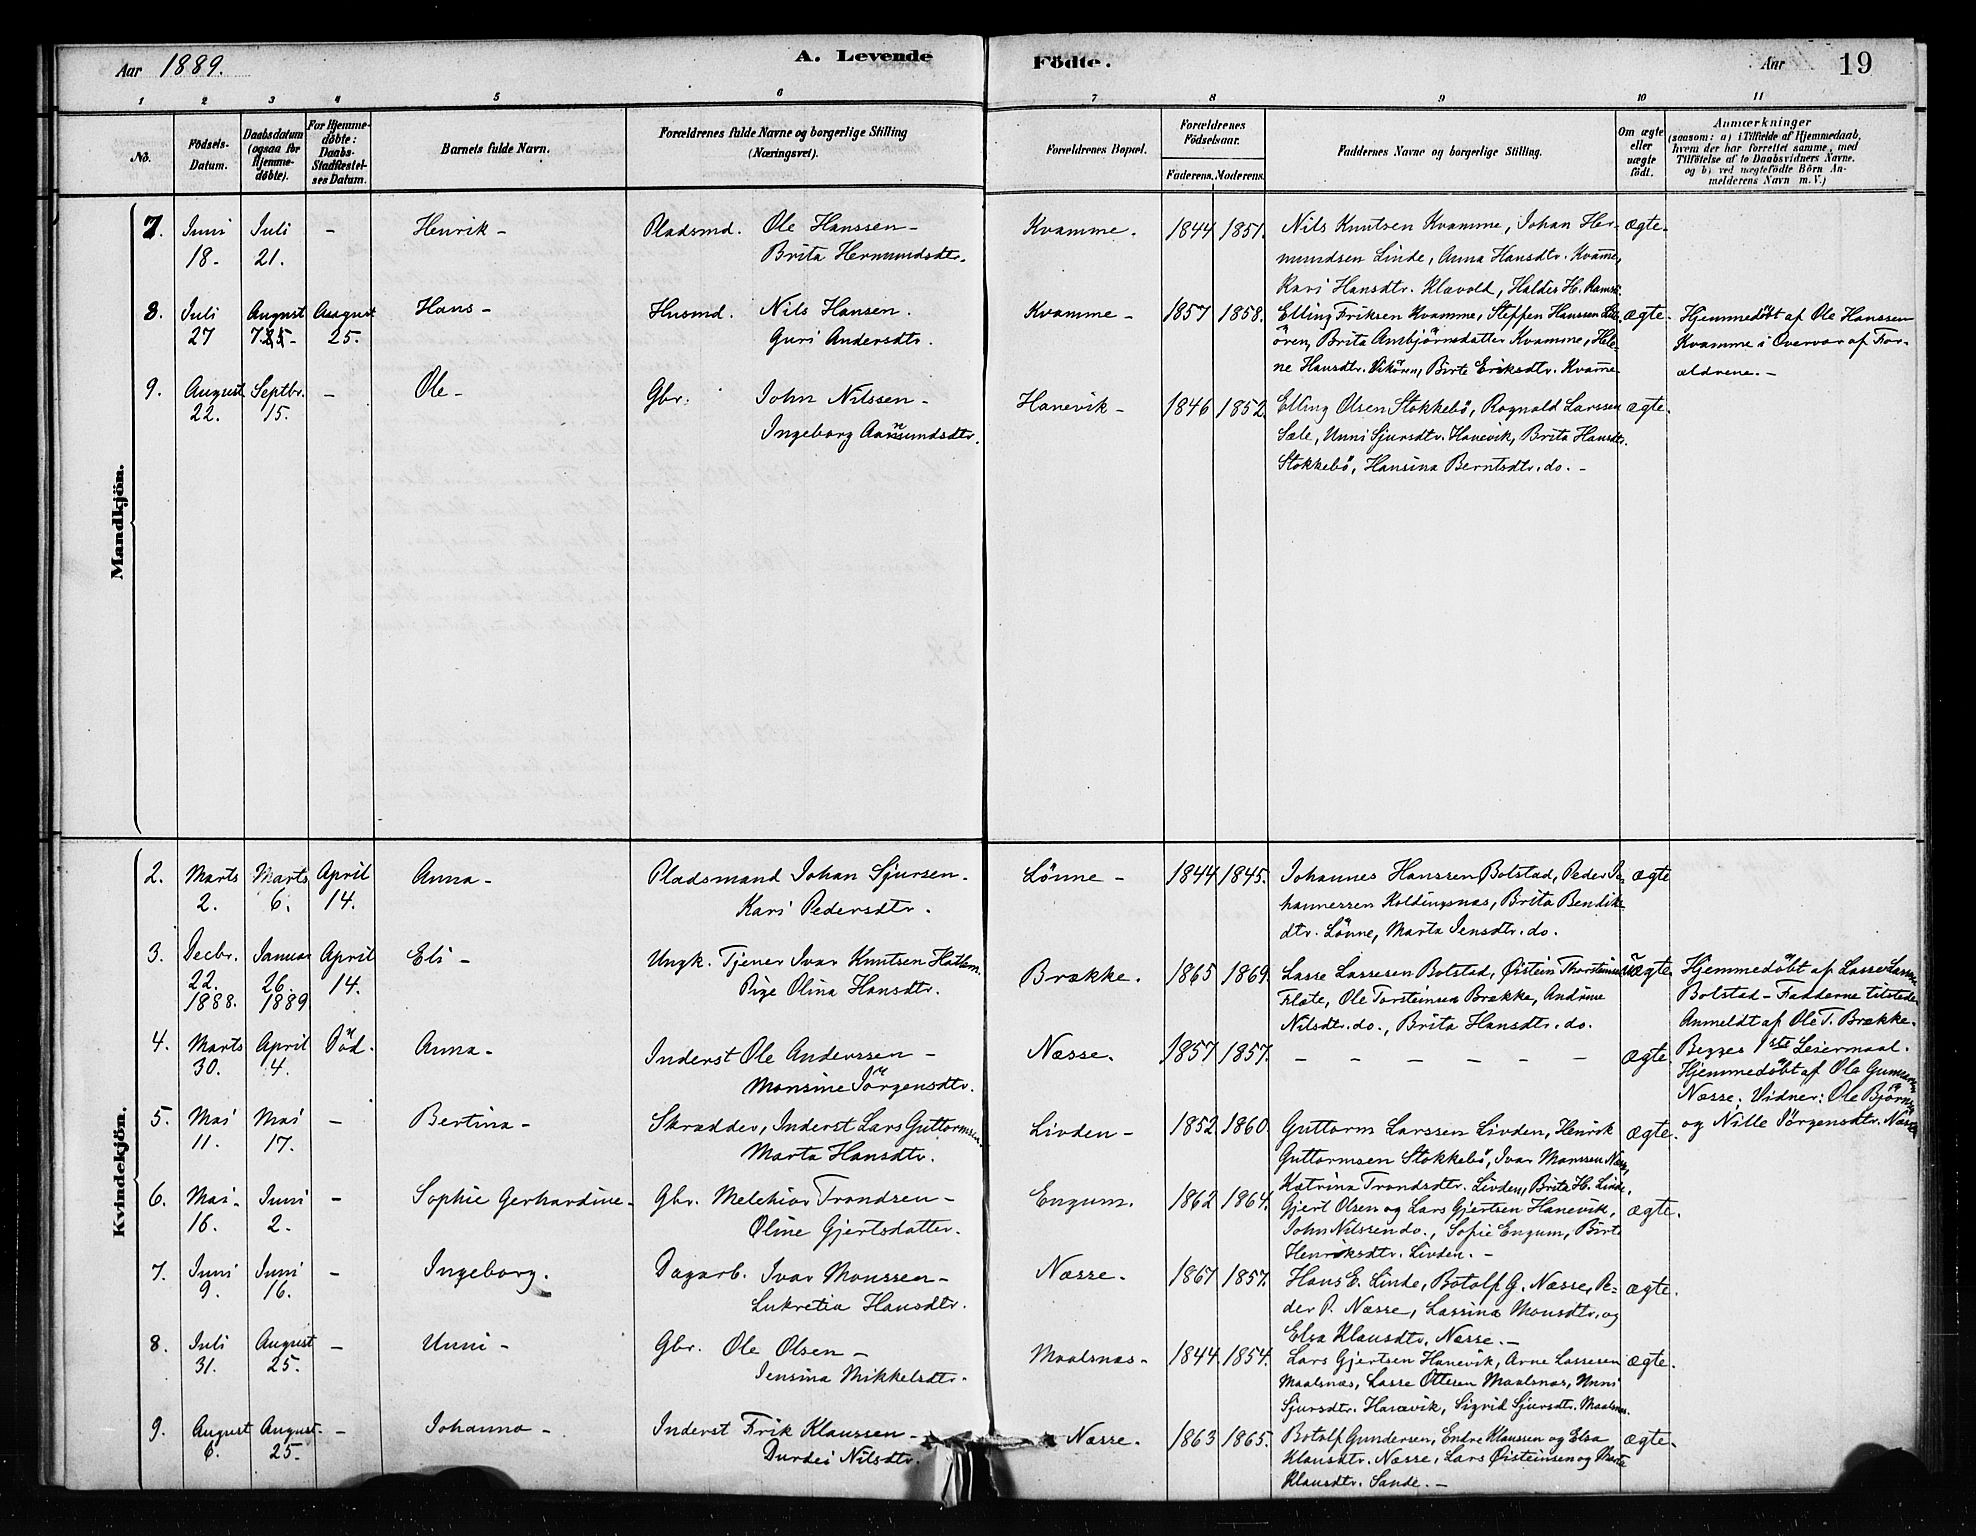 Aar 1889.
A. Levende Födte.
Aar 19
1 2 3 4 5 6 7 8 9 10 11
No.
Födsels-Datum.
Daabsdatum (ogsaa for Hjemmedöbte).
For Hjemmedöbte: Daabs-Stadfæstelses Datum.
Barnets fulde Navn.
Forældrenes fulde Navne og borgerlige Stilling (Næringsvei).
Forældrenes Bopæl.
Forældrenes Födselsaar.
Faderens. Moderens.
Faddernes Navne og borgerlige Stilling.
Om ægte eller uægte födt.
Anmærkninger
(saasom: a) i Tilfælde af Hjemmedaab,
hvem der har forrettet samme, med
Tilföielse af to Daabsvidners Navne.
og b) ved uægtefödte Börn An-
melderens Navn m. V.)
Mandkjön.
7. Juni 18. Juli 21. - Henrik - Pladsmd. Ole Hanssen - Brita Hermundsdtr. Kvamme. 1844 1851. Nils Knutsen Kvamme, Johan Her-
mundsen Linde, Anna Hansdtr. Kvame,
Kari Hansdtr. Klævold, Haldes H. ægte.
8. Juli 27 August 7. August 25. Hans - Husmd. Nils Hansen. Guri Andersdtr. Kvamme - 1857 1858. Elling Eriksen Kvamme, Steffen Hanssen
ören, Brita Ambjörnsdatter Kvamme, Hele-
ne Hansdtr. Vikören, Birte Eriksdtr. Kvame ægte.
Hjemmedöbt af Ole Hanssen
Kvamme i Overvær af For-
ældrene. -
9. August 22. Septbr. 15. - Ole - Gbr. John Nilssen - Ingeborg Aamundsdtr. Hanevik - 1846 1852. Elling Olsen Stokkebö, Rognald Larssen
Sæle, Unni Sjursdtr. Hanevik, Brita Hansdtr.
Stokkebö, Hansina Berntsdtr. do. - ægte.
Kvindekjön.
2. Marts 2. Marts 6. April 14. Anna - Pladsmand Johan Sjursen - Kari Pedersdtr. Lönne - 1844 1845. Johannes Hanssen Bolstad, Peder Jo-
hannessen Koldingsnæs, Brita Bendiks-
dtr. Lönne, Marta Jensdtr. do. ægte
3. Decbr. 22. 1888. Januar 26. 1889 April 14. Eli - Ungk. Tjener Ivar Knutsen Hatlem. Pige Olina Hansdtr. Brække. 1865 1869. Lasse Lassesen Bolstad, Øistein Thorsteinsen
Flate, Ole Torsteinsen Brække, Andrine
Nilsdtr. do., Brita Hansdtr. do. uægte.
Hjemmedöbt af Lasse Lassesen
Bolstad - Fadderne tilstede
Anmeldt af Ole T. Brække.
Begges 1ste Leiermaal.
4. Marts 30. April 4. Död. Anna - Inderst Ole Anderssen - Monsine Jörgensdtr. Næsse. 1857 1857. - - - - - - ægte
Hjemmedöbt af Ole Gunnarsen
Næsse; Vidner: Ole Björnsen
og Nille Jörgensdtr. Næsse
5. Mai 11. Mai 17. - Bertina - Skrædder, Inderst Lars Guttormsen Marta Hansdtr. Livden - 1852 1860. Guttorm Larssen Livden, Henrik
Guttormsen Stokkebö, Ivar Monssen Næsse,
Katrina Trondsdtr. Livden, Brita H. Linde. ægte.
6. Mai - 16. Juni 2. - Sophie Gerhardine - Gbr. Melchior Trondsen - Oline Gjertsdatter. Engum. 1862 1864. Gjert Olsen og Lars Gjertsen Hanevik,
John Nilssen do., Sofie Engum, Birte
Henriksdtr. Livden. - ægte.
7. Juni 9. Juni 16. - Ingeborg. Dagarb. Ivar Monssen - Lukretia Hansdtr. Næsse. 1867 1857. Hans E. Linde, Botolf G. Næsse, Pe-
der P. Næsse, Lassina Monsdtr. og
Elsa Klausdtr. Næsse. - ægte.
8. Juli 31. August 25. - Unni - Gbr. Ole Olsen - Jensina Mikkelsdtr. Maalsnæs - 1844 1854. Lars Gjertsen Hanevik, Arne Lassesen
Maalsnæs, Lasse Ottesen Maalsnæs, Unni
Sjursdtr. Hanevik, Sigrid Sjursdtr. Maalsnæs. ægte.
9. August 6. August 25. - Johanna - Inderst Erik Klaussen - Durdei Nilsdtr. Næsse. 1863 1865. Botolf Gundersen, Endre Klaussen og Elsa
Klausdtr. Næsse, Lars Øisteinsen og Marta
Klausdtr. Sande. - ægte.